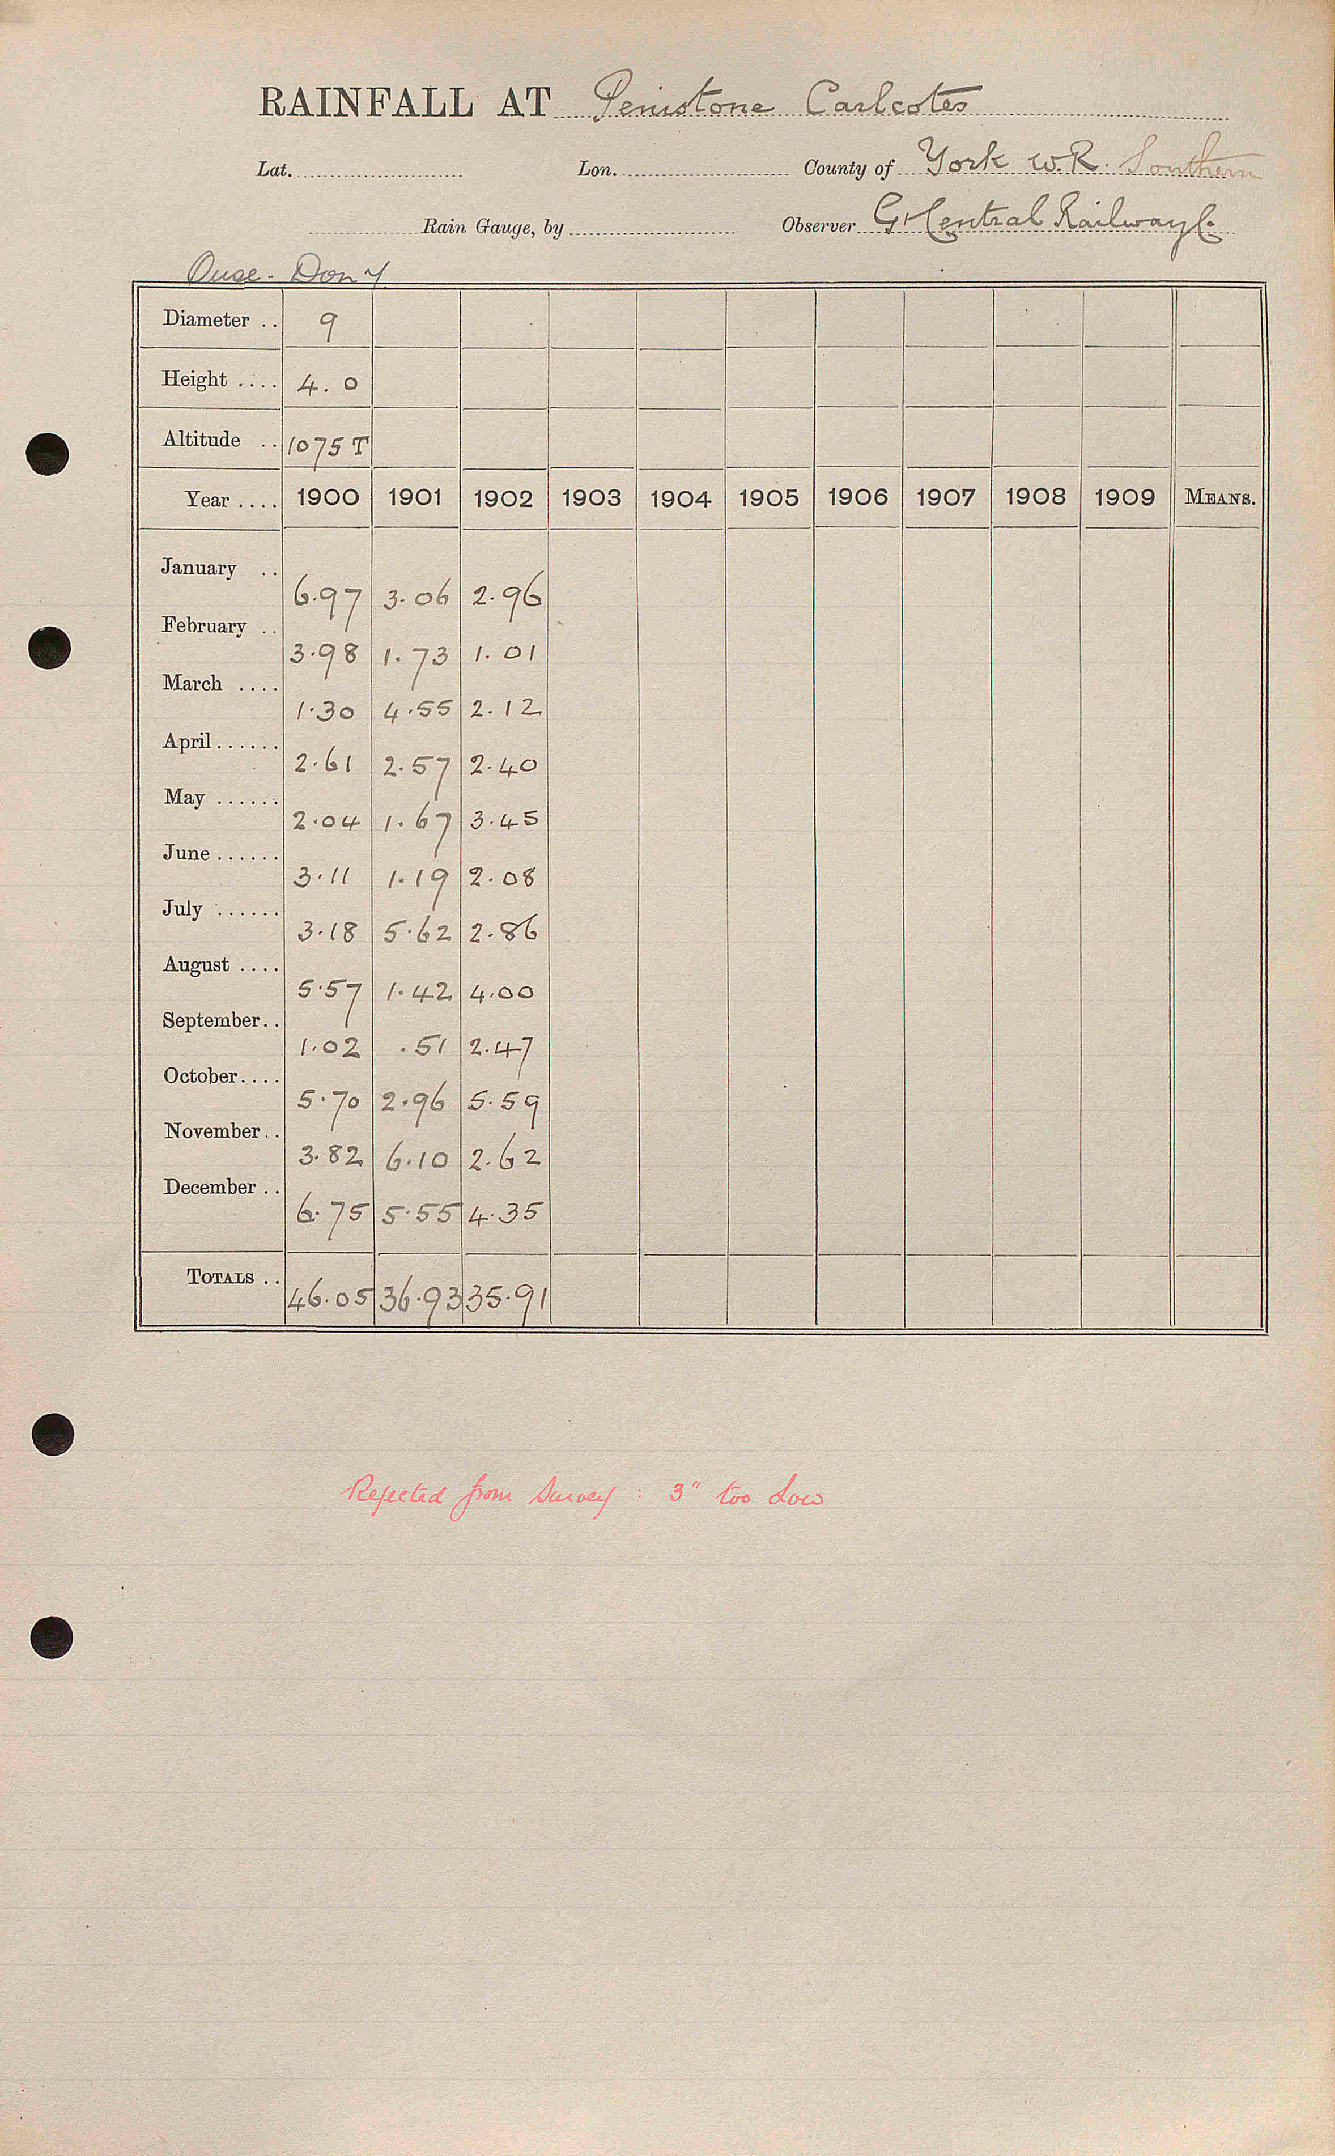 RAINFALL AT Penistone Carlcotes
Lat. Lon. County of York W.R. Southern
Rain Gauge, by Observer Gt Central Railway Co.
Ouse - Don
Diameter .. 9
Height .... 4.0
Altitude .. 1075 T
Year .... 1900 1901 1902 1903 1904 1905 1906 1907 1908 1909 MEANS.
January .. 6.97 3.06 2.96
February .. 3.98 1.73 1.01
March .... 1.30 4.55 2.12
April ...... 2.61 2.57 2.40
May ...... 2.04 1.67 3.45
June ...... 3.11 1.19 2.08
July ...... 3.18 5.62 2.86
August .... 5.57 1.42 4.00
September.. 1.02 .51 2.47
October.... 5.70 2.96 5.59
November.. 3.82 6.10 2.62
December .. 6.75 5.55 4.35
TOTALS .. 46.05 36.93 35.91
Rejected from Survey : 3" too Low